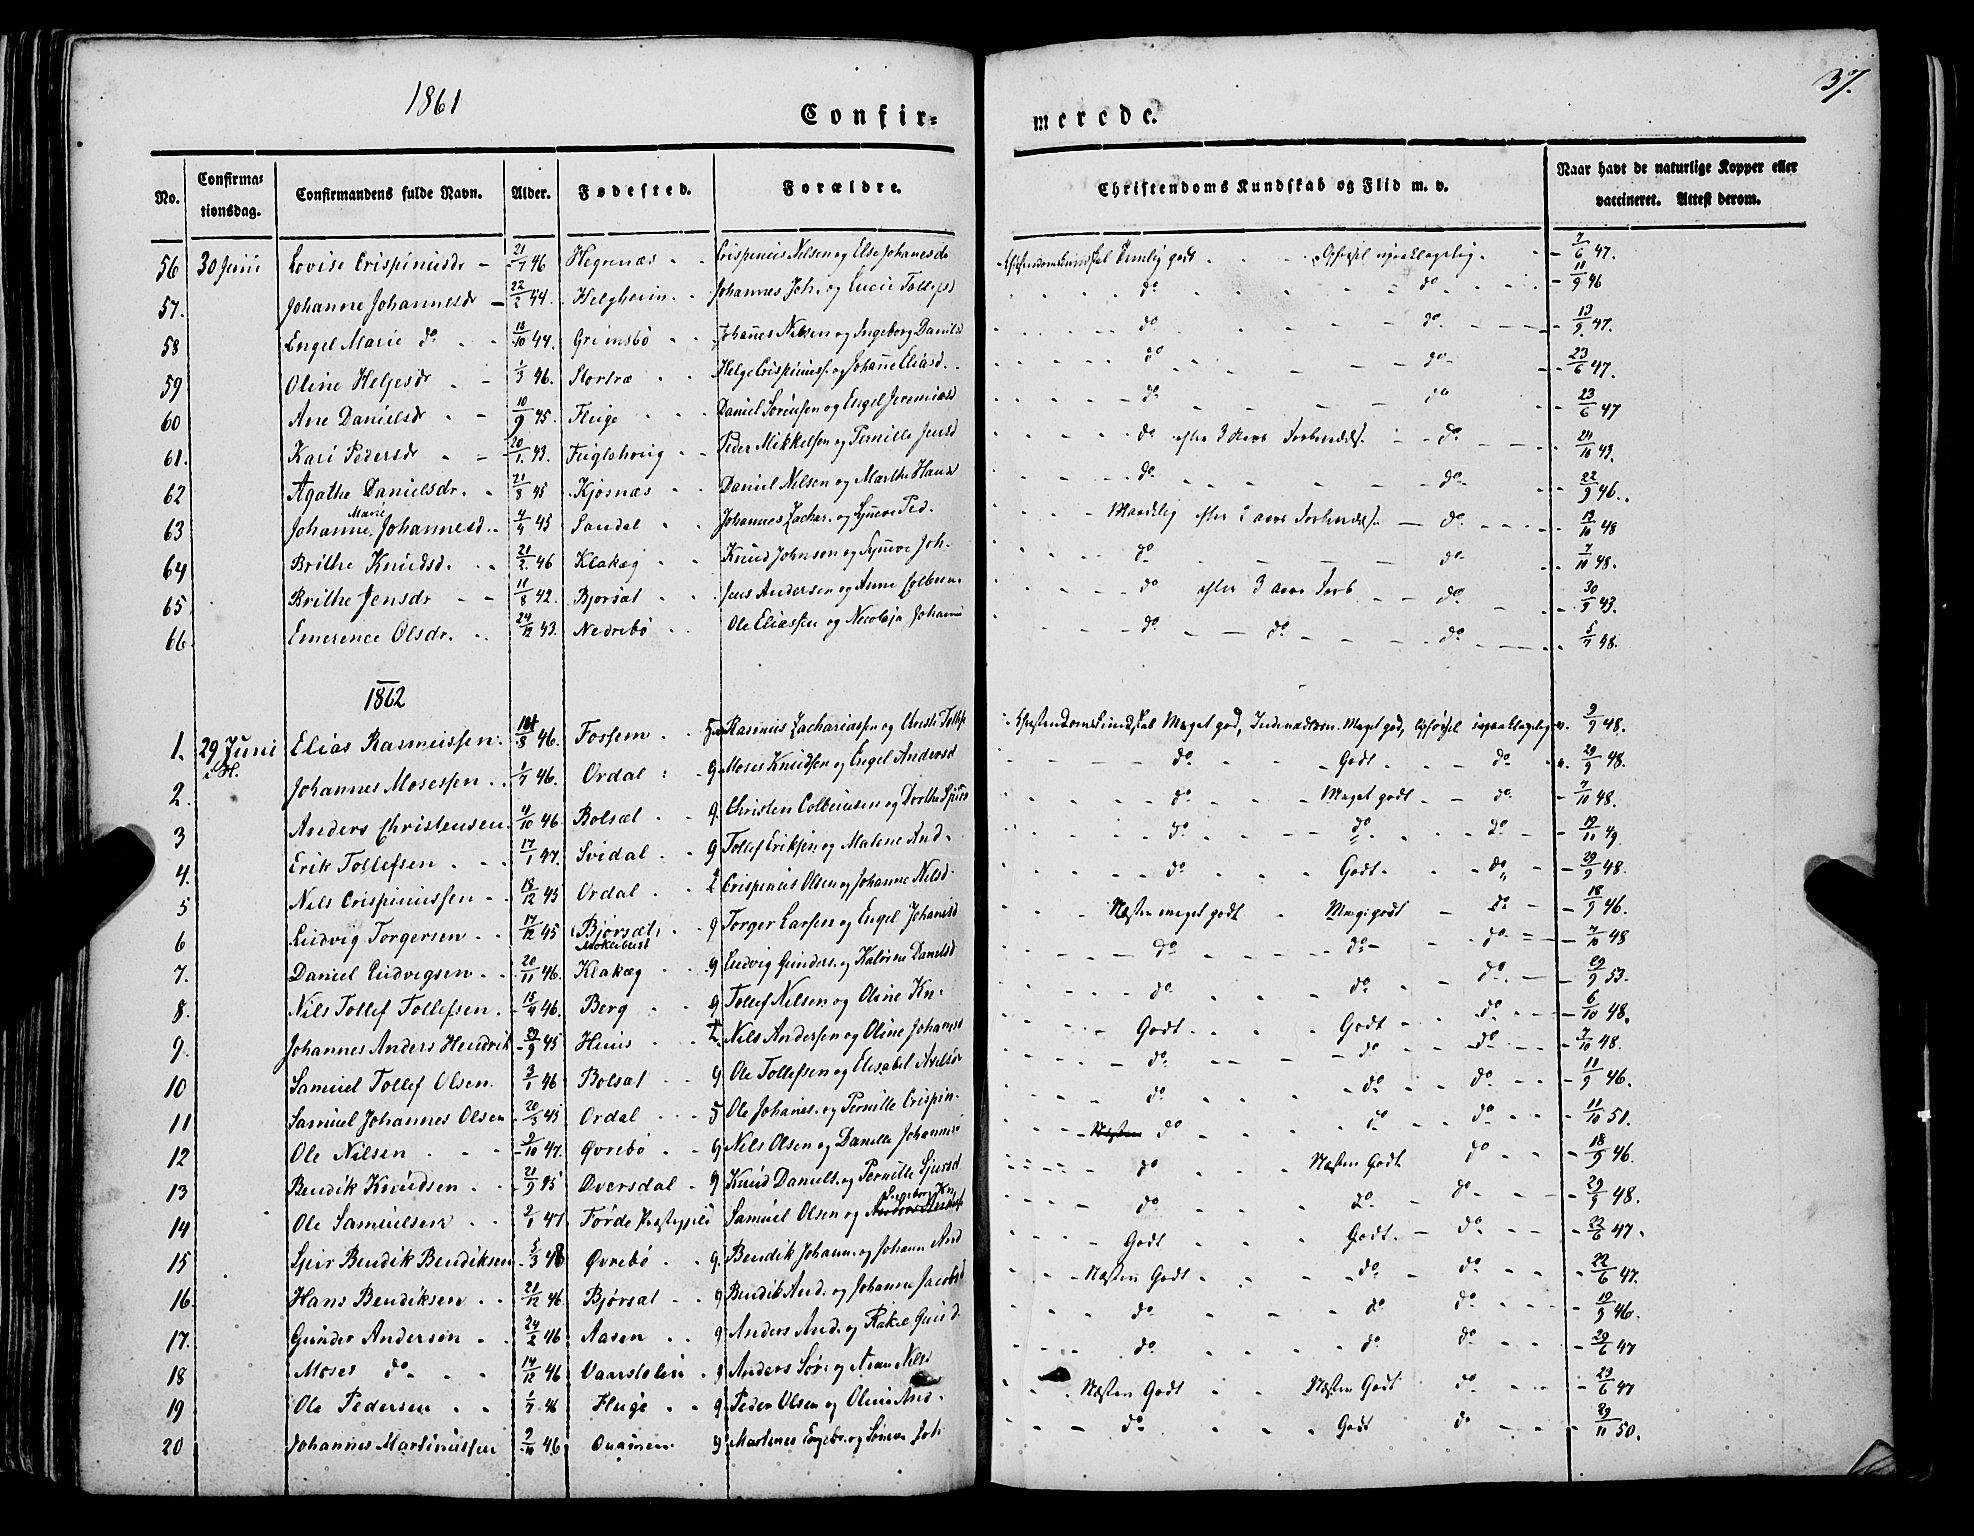 1861
37.
Confir-
merede.
No.
Confirmationsdag.
Confirmandens fulde Navn.
Alder.
Fødested.
Forældre.
Christendoms Kundskab og Flid m. v.
Naar havt de naturlige Kopper eller vaccineret. Attest derom.
56 30 Juni Lovise Crispinusdr - 21/7 46 Hegrenæs - - Crispinus Nilsen og Else Johanesdr 7/6 47.
57. Johanne Johannesdr - 22/2 44. Helgheim - Johannes Joh. og Lucie Tollefsd - do - do - 11/9 46
58 Engel Marie do - - 18/10 44. Grimsbø - - Johanes Nilsen og Ingeborg Danilsd - do - do - 13/9 47.
59 Oline Helgesdr - - 1/3 46. Stortræ - - Helge Crispinusf. og Johane Eliasd. - do - do - 23/6 47.
60 Ane Danielsdr - - 10/9 45. Fluge - - Daniel Sørensen og Engel Jeremiasd - do - do - 23/6 47
61. Kari Pedersdr - - 20/1 43. Fuglehoug - - Peder Mikkelsen og Pernille Jensd - do efter 3 Aars - do - 24/10 43.
62 Agathe Danielsdr. - 21/8 45 Kjøsnæs - - Daniel Nilsen og Marthe Hansd - do - do - 22/9 46.
63 Johanne Marie Johannesd. - 4/4 45 Sandal - - Johannes Zachar. og Synneve Ped. - Maadelig efter 2 aars - do - 13/10 48
64 Brithe Knudsd. - - 21/2 46 Klakæg - - Knud Johnsen og Synneve Joh. - do - do - 7/10 48.
65 Brithe Jensdr - - 11/8 42. Bjorsæt - - Jens Andersen og Anne Colbeen. - do efter 3 aars Forb - do - 30/9 43.
66 Emerence Olsdr. - - 24/12 43. Nedrebø - - Ole Eliassen og Nicolaja Johanne - do - do - do - 5/7 48.
1862
1. 29 Juni i H. Elias Rasmussen. 18/8 46. Fossem - - Rasmus Zachariassen og Christi Tollefs Meget god, Meget god, 9/9 48.
2. Johannes Mosessen - - 1/7 46. Ordal - - 9 Moses Knudsen og Engel Andersd - do - Godt - do - 29/9 48.
3 Anders Christensen. 4/10 46 Bolsæt - - 9. Christen Colbeinsen og Dorthe - do - Meget godt - do - 7/10 48.
4. Erik Tollefsen - - 17/1 47. Svidal - - 9 Tollef Eriksen og Malene And. - do - do - do - 19/11 49
5 Nils Crispinussen - - 18/12 45 Ordal - - Crispinus Olsen og Johanne Nilsd. - do - Godt - do - 29/9 48.
6 Ludvig Torgersen - - 17/12 45 Bjørsæt - - 9 Torger Larsen og Engel Johanesd - Næsten meget godt - Meget godt - do - 18/9 46.
7. Daniel Ludvigsen - - 20/11 46. Klakæg - - 9 Ludvig Gunders. og Danielsd - do - do - do - 7/10 48
8. Nils Tollef Tollefsen. - 15/4 46. Berg - - 9 Tollef Nilsen og Oline Kn. - do - do - do - 29/9 53.
9. Johannes Anders Hendrik 29/9 45 Huus - - Nils Andersen og Oline Johanesd - Godt - Godt - do - 6/10 48.
10 Samuel Tollef Olsen. 3/1 46 Bolsæt - - 9 Ole Tollefsen og Elisabet - do - do - do - 7/10 48.
11 Samuel Johannes Olsen 20/3 45 Ordal - - 5 Ole Johanes. og Pernille Crispin. - do - do - do - 11/9 46.
12 Ole Nilsen - - 9/10 47. Øvrebø - - 9 Nils Olsen og Danille Johannes - Næsten do - do - do - 11/10 51.
13 Bendik Knudsen - - 21/9 45 Dversdal - 9 Knud Daniels. og Pernille Sjursd - do - Næsten Godt - do - 18/9 46.
14 Ole Samuelsen - - 2/1 47 Førde Samuel Olsen og Ingeborg Kn. - do - do - do - 29/9 48.
15 Sjur Bendik Bendiksen - 5/3 48 Øvrebø - - 9. Bendik Johann. og Johann And - Godt - Godt - do - 22/6 47.
16 Hans Bendiksen - - 21/12 46 Bjørsæt - - 9 Bendik And. og Johanne Jacobsd - Næsten Godt - do - do - 22/6 47.
17. Gunder Andersen - - 24/2 46 Aasen - - 9 Anders And. og Rakel Gund. - do - do - do - 19/9 46.
18 Moses do - - 14/12 46 Vaarstølen - 9 Anders Sør. og Anne Nilsd - do - do - do - 29/6 47
19 Ole Pedersen - - 1/7 46 Fluge - - 9 Peder Olsen og Oline And. - Næsten Godt - Næsten Godt - do - 23/6 47
20 Johannes Martinussen 2/11 46 9 Martines Engebr. og Joh - do - Godt - do - 29/11 50.